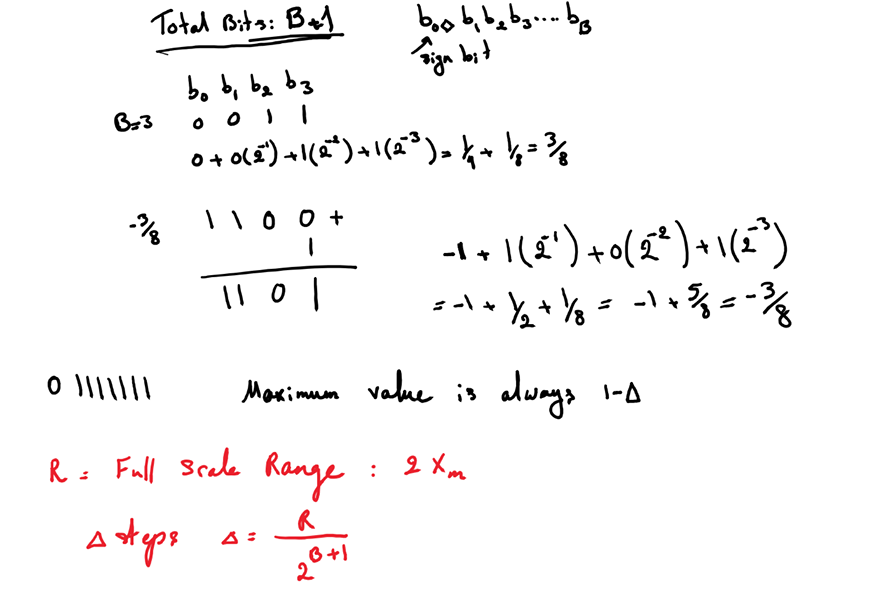 Total Bits: B+1
b₀◇b₁b₂b₃....b_B
sign bit
b₀ b₁ b₂ b₃
B=3 0 0 1 1
0+0(2⁻¹)+1(2⁻²)+1(2⁻³)=1/4+1/8=3/8
-3/8 1 1 0 0 +
1
1 1 0 1
-1+1(2⁻¹)+0(2⁻²)+1(2⁻³)
=-1+1/2+1/8= -1+5/8=-3/8
0 1111111 Maximum value is always 1-Δ
R = Full Scale Range : 2 Xₘ
Δ steps Δ= R/2^(B+1)